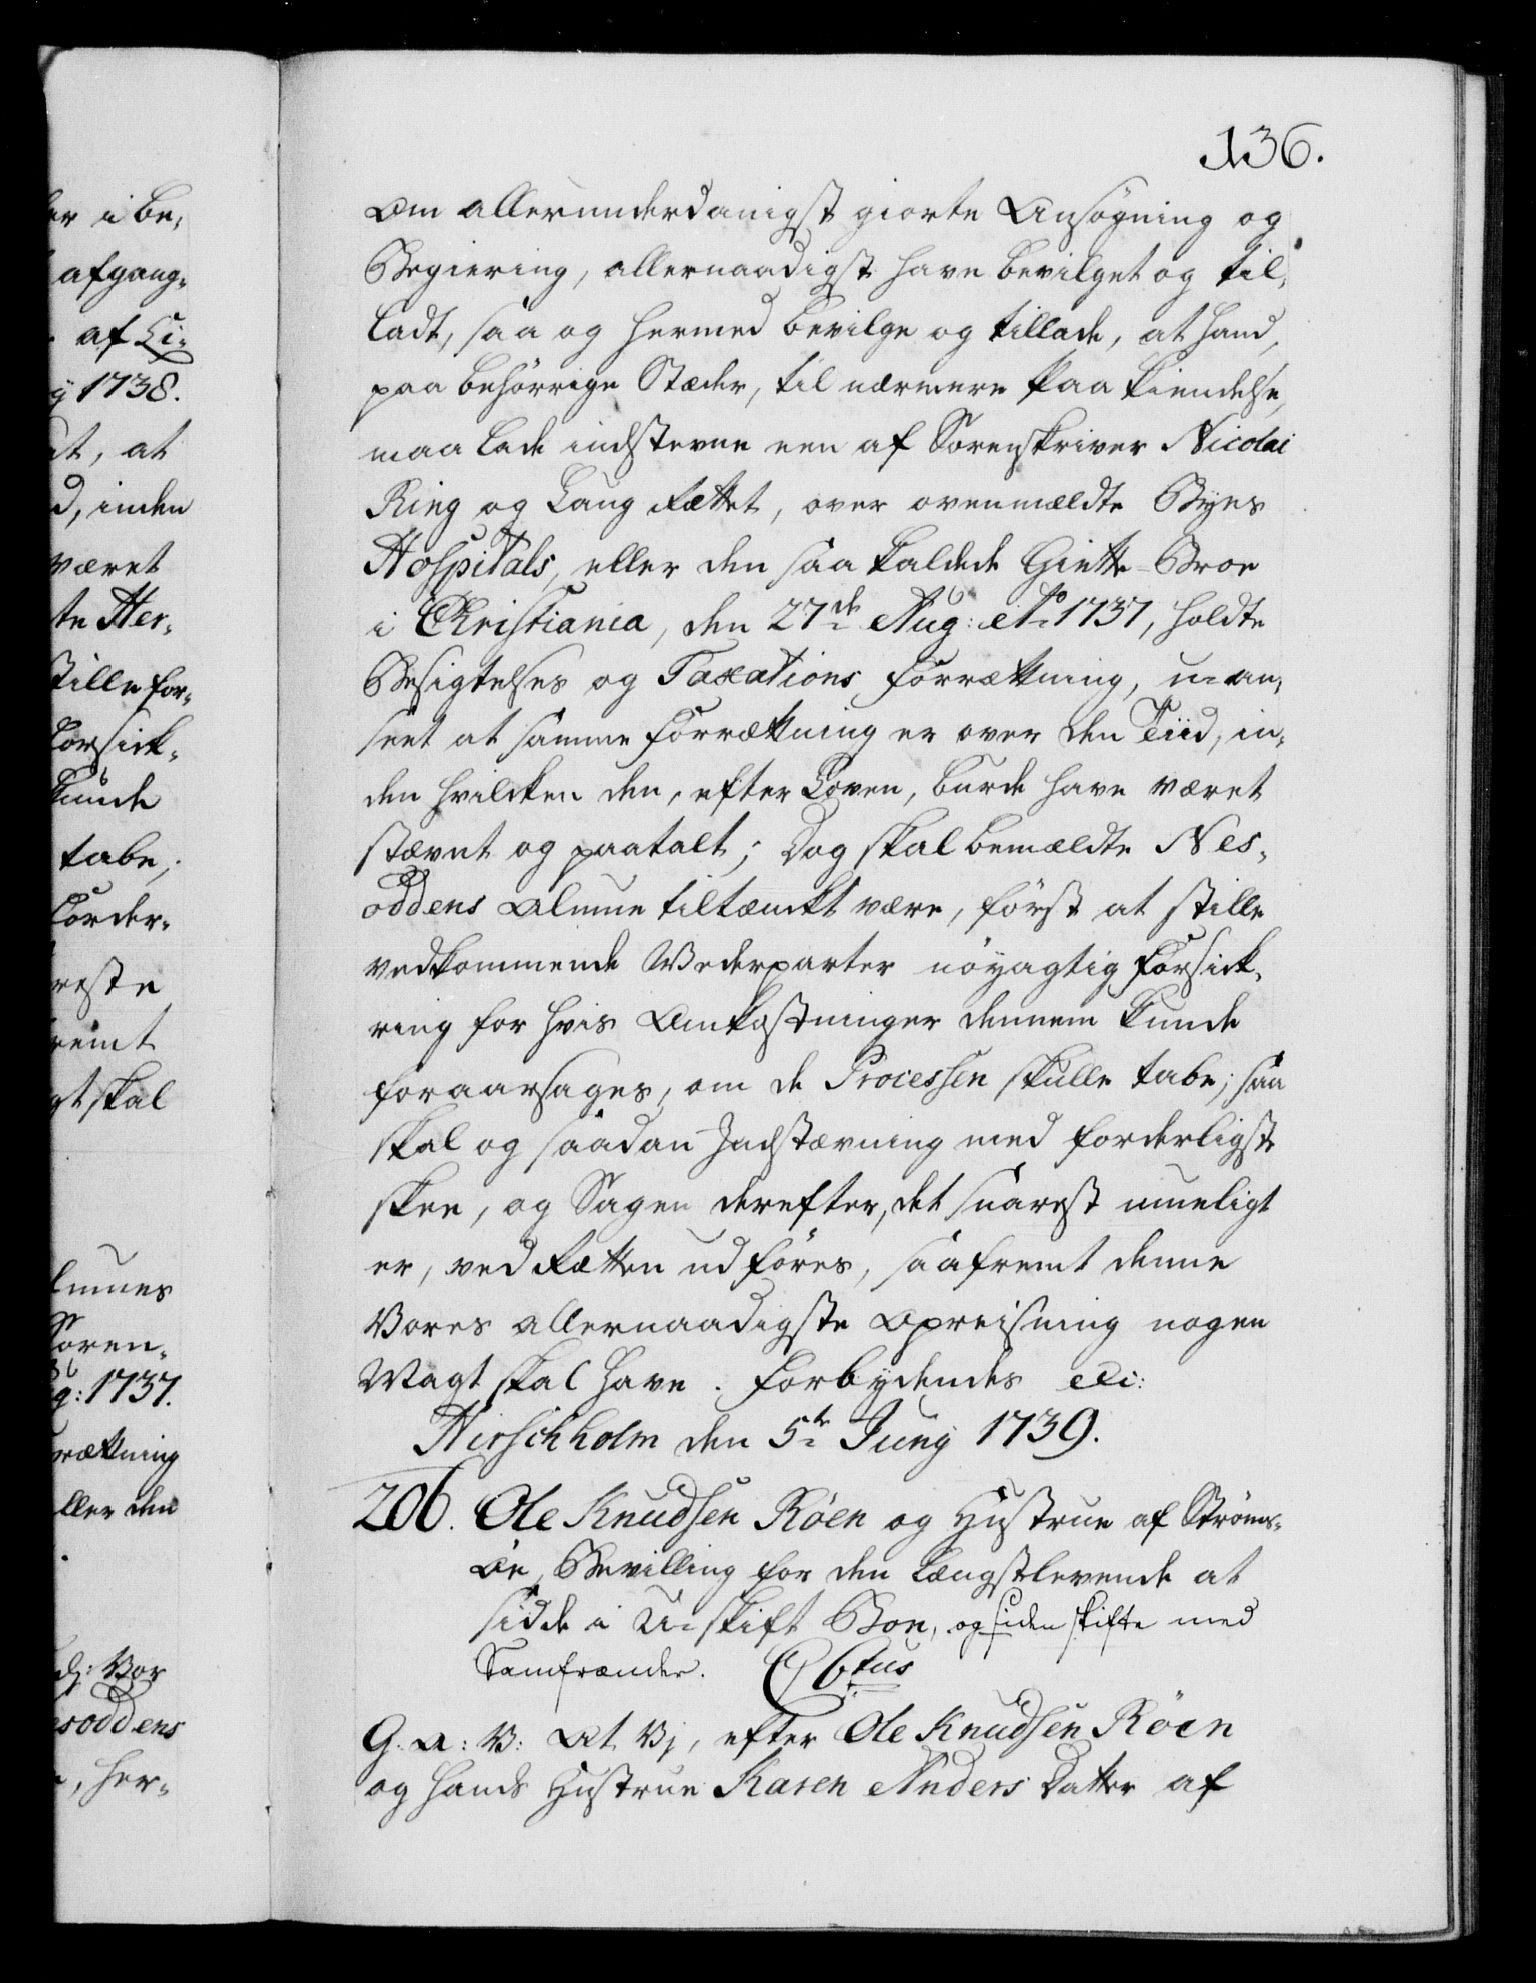 136.
Om allerunderdanigst giorte Ansøgning og
Begiering, allernaadigst have bevilget og til,
ladt, saa og hermed bevilge og tillade, at hand,
paa behørrige Stæder, til nærmere Paakiendelse,
maa lade indstevne een af Sorenskriver Nicolai
Ring og Laug Rættet, over ovenmældte Byes
Hospitals, eller den saa kaldede Giette-Broe
i Christiania, den 27de Aug: Ao 1737, holdte
Besigtelses og Taxations Forrættning, u-an,
seet at samme Forrættning er over den Tiid, in,
den hvilcken den, efter Loven, burde have været
stævnt og paatalt; Dog skal bemældte Nes,
oddens Almue tiltænckt være, først at stille
vedkommende Wederparter nøyagtig Forsick,
ring for hvis Omkostninger dennem kunde
foraarsages, om de Processen skulle tabe; saa
skal og saadan Indstævning med forderligst
skee, og Sagen derefter, det snarest mueligt
er, ved Rætten udføres, saafremt denne
Vores allernaadigste Opreisning nogen
Magt skal have. Forbydendes etc:
Hirschholm den 5te Juny 1739.
206. Ole Knudsen Røen og Hustrue af Strøms-
øe, Bevilling for den Længstlevende at
sidde i U-skift Boe, og siden skifte med
Samfrænder. Cbtus
G. A: V: At Vj, efter Ole Knudsen Röen
og hands Hustrue Karen Anders Datter af
er i be,
afgang-
af Li-
y 1738.
at, at
d, inden
været
te Her-
stille for-
Forsick-
kunde
tabe,
Forder-
reste
remt
gt skal
lmues
Soren-
g: 1737.
rættning
eller den
d: Vor
esoddens
, her-